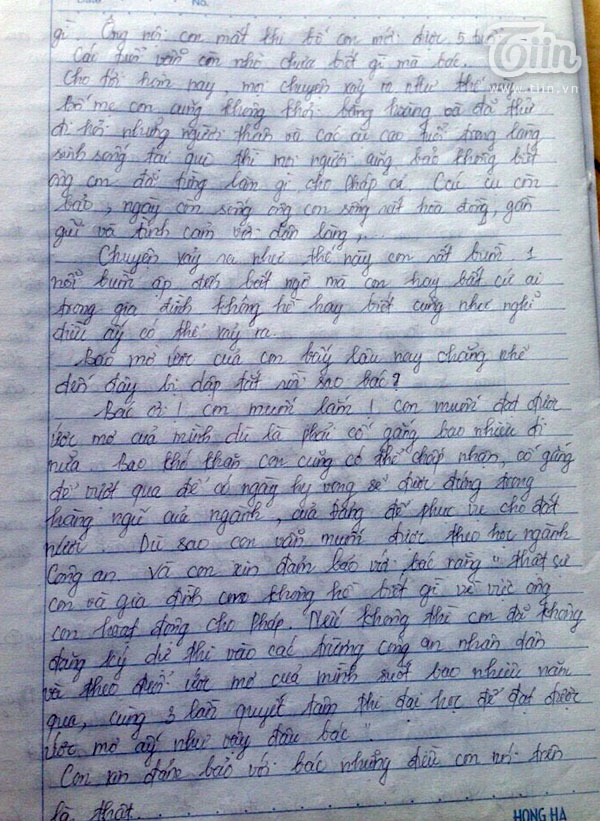 Date No.
Tiin
www.tiin.vn
gì. Ông nội con mất khi bố con mới được 5 tuổi
Cái tuổi vẫn còn nhỏ chưa biết gì mà bác.
Cho tới hôm nay, mọi chuyện xảy ra như thế này
bố mẹ con cũng không khỏi bàng hoàng và đã thử
đi hỏi những người thân và các cụ cao tuổi trong làng
sinh sống tại quê thì mọi người cũng bảo không biết
ông con đã từng làm gì cho Pháp cả. Các cụ còn
bảo, ngày còn sống ông con sống rất hòa đồng, gần
gũi và tình cảm với dân làng,...
Chuyện xảy ra như thế này con rất buồn. 1
nỗi buồn ập đến bất ngờ mà con hay bất cứ ai
trong gia đình không hề hay biết cũng như nghĩ
điều ấy có thể xảy ra.
Bao mơ ước của con bấy lâu nay chẳng nhẽ
đến đây bị dập tắt rồi sao bác?
Bác ơi! con muốn lắm! con muốn đạt được
ước mơ của mình dù là phải cố gắng bao nhiêu đi
nữa. Bao khó khăn con cũng có thể chấp nhận, cố gắng
để vượt qua để có ngày hy vọng sẽ được đứng trong
hàng ngũ của ngành, của Đảng để phục vụ cho đất
nước. Dù sao con vẫn muốn được theo học ngành
Công an. Và con xin đảm bảo với bác rằng "thật sự
con và gia đình con không hề biết gì về việc ông
con hoạt động cho Pháp. Nếu không thì con đã không
đăng ký dự thi vào các trường công an nhân dân
và theo đuổi ước mơ của mình suốt bao nhiêu năm
qua, cùng 3 lần quyết tâm thi đại học để đạt được
ước mơ ấy như vậy đâu bác"
Con xin đảm bảo với bác những điều con nói trên
là thật.
HONG HA